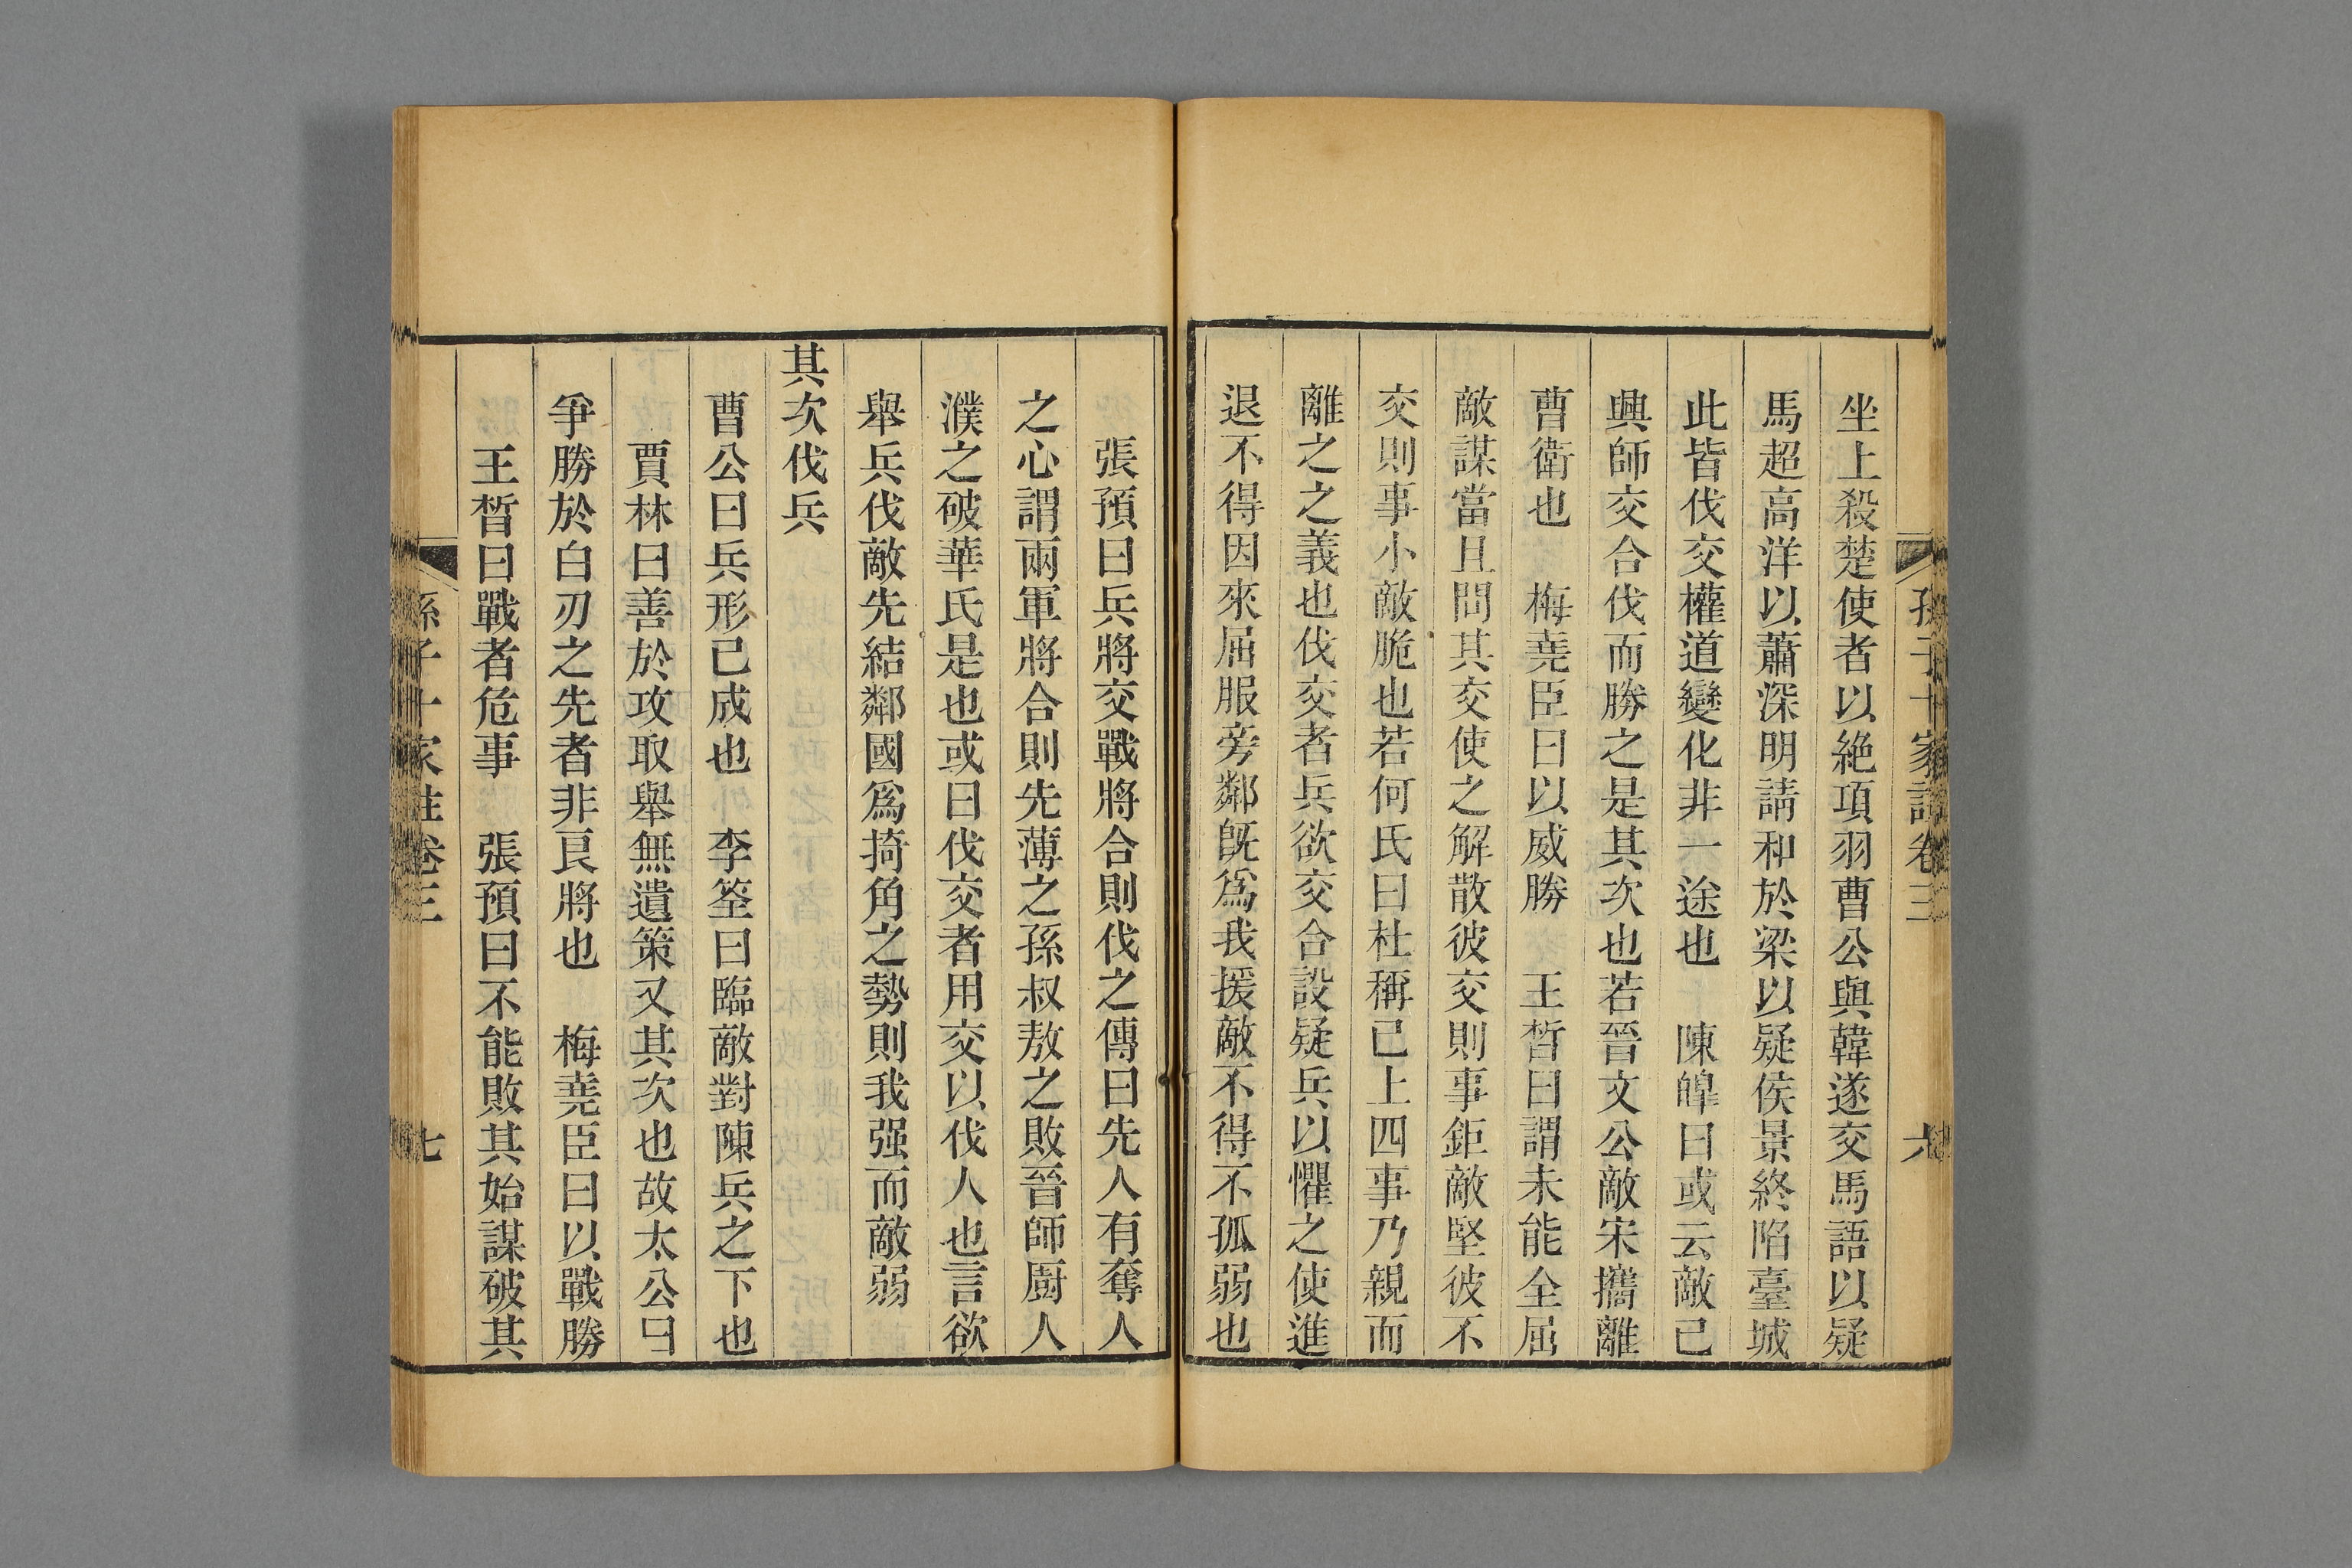 孫子十家註卷三
六
坐上殺楚使者以絶項羽曹公與韓遂交馬語以疑
馬超高洋以蕭深明請和於梁以疑侯景終陷臺城
此皆伐交權道變化非一途也 陳皥曰或云敵已
興師交合伐而勝之是其次也若晉文公敵宋攜離
曹衛也 梅堯臣曰以威勝 王晳曰謂未能全屈
敵謀當且問其交使之解散彼交則事鉅敵堅彼不
交則事小敵脆也若何氏曰杜稱已上四事乃親而
離之之義也伐交者兵欲交合設疑兵以懼之使進
退不得因來屈服旁鄰旣爲我援敵不得不孤弱也
張預曰兵將交戰將合則伐之傳曰先人有奪人
之心謂兩軍將合則先薄之孫叔敖之敗晉師廚人
濮之破華氏是也或曰伐交者用交以伐人也言欲
舉兵伐敵先結鄰國爲掎角之勢則我强而敵弱
其次伐兵
曹公曰兵形已成也 李筌曰臨敵對陳兵之下也
賈林曰善於攻取舉無遺策又其次也故太公曰
爭勝於白刃之先者非良將也 梅堯臣曰以戰勝
王晳曰戰者危事 張預曰不能敗其始謀破其
孫子十家註卷三
七